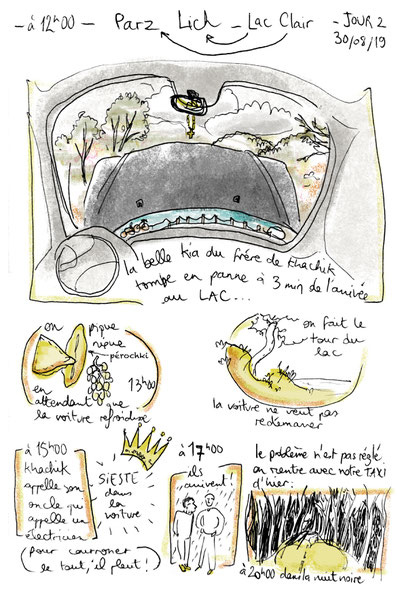 - à 12h00 - Parz Lich - Lac Clair - JOUR 2
30/08/19
la belle kia du frère de Khachik
tombe en panne à 3 min de l'arrivée
au LAC...
on pique
nique
pérochki
13h00
en
attendant que
la voiture refroidisse
on fait le
tour du
lac
la voiture ne veut pas
redémarrer
à 15h00
Khachik
appelle son
oncle qui
appelle un
électricien
(pour couronner
le tout, il pleut!)
SIESTE
dans
la
voiture
à 17h00
ils
arrivent!
le problème n'est pas réglé,
on rentre avec notre TAXI
d'hier:
à 20h00 dans la nuit noire